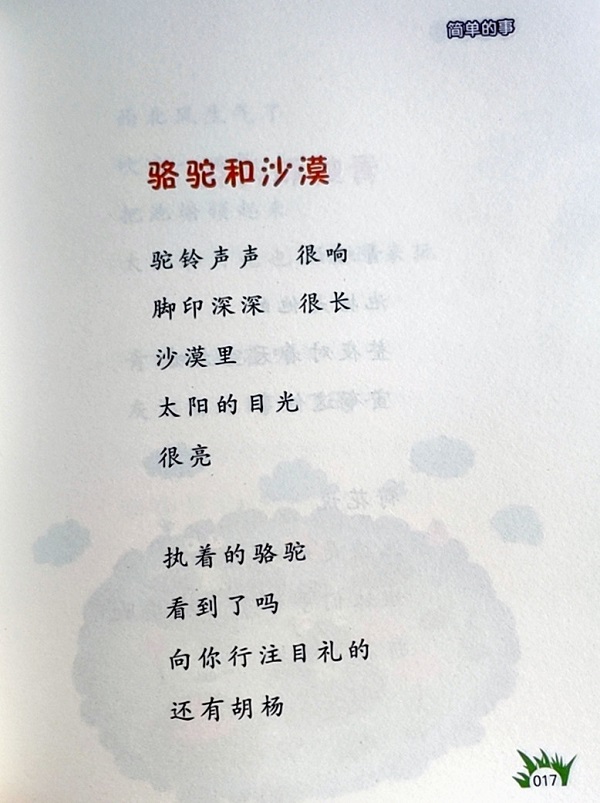 简单的事
骆驼和沙漠
驼铃声声 很响
脚印深深 很长
沙漠里
太阳的目光
很亮
执着的骆驼
看到了吗
向你行注目礼的
还有胡杨
017